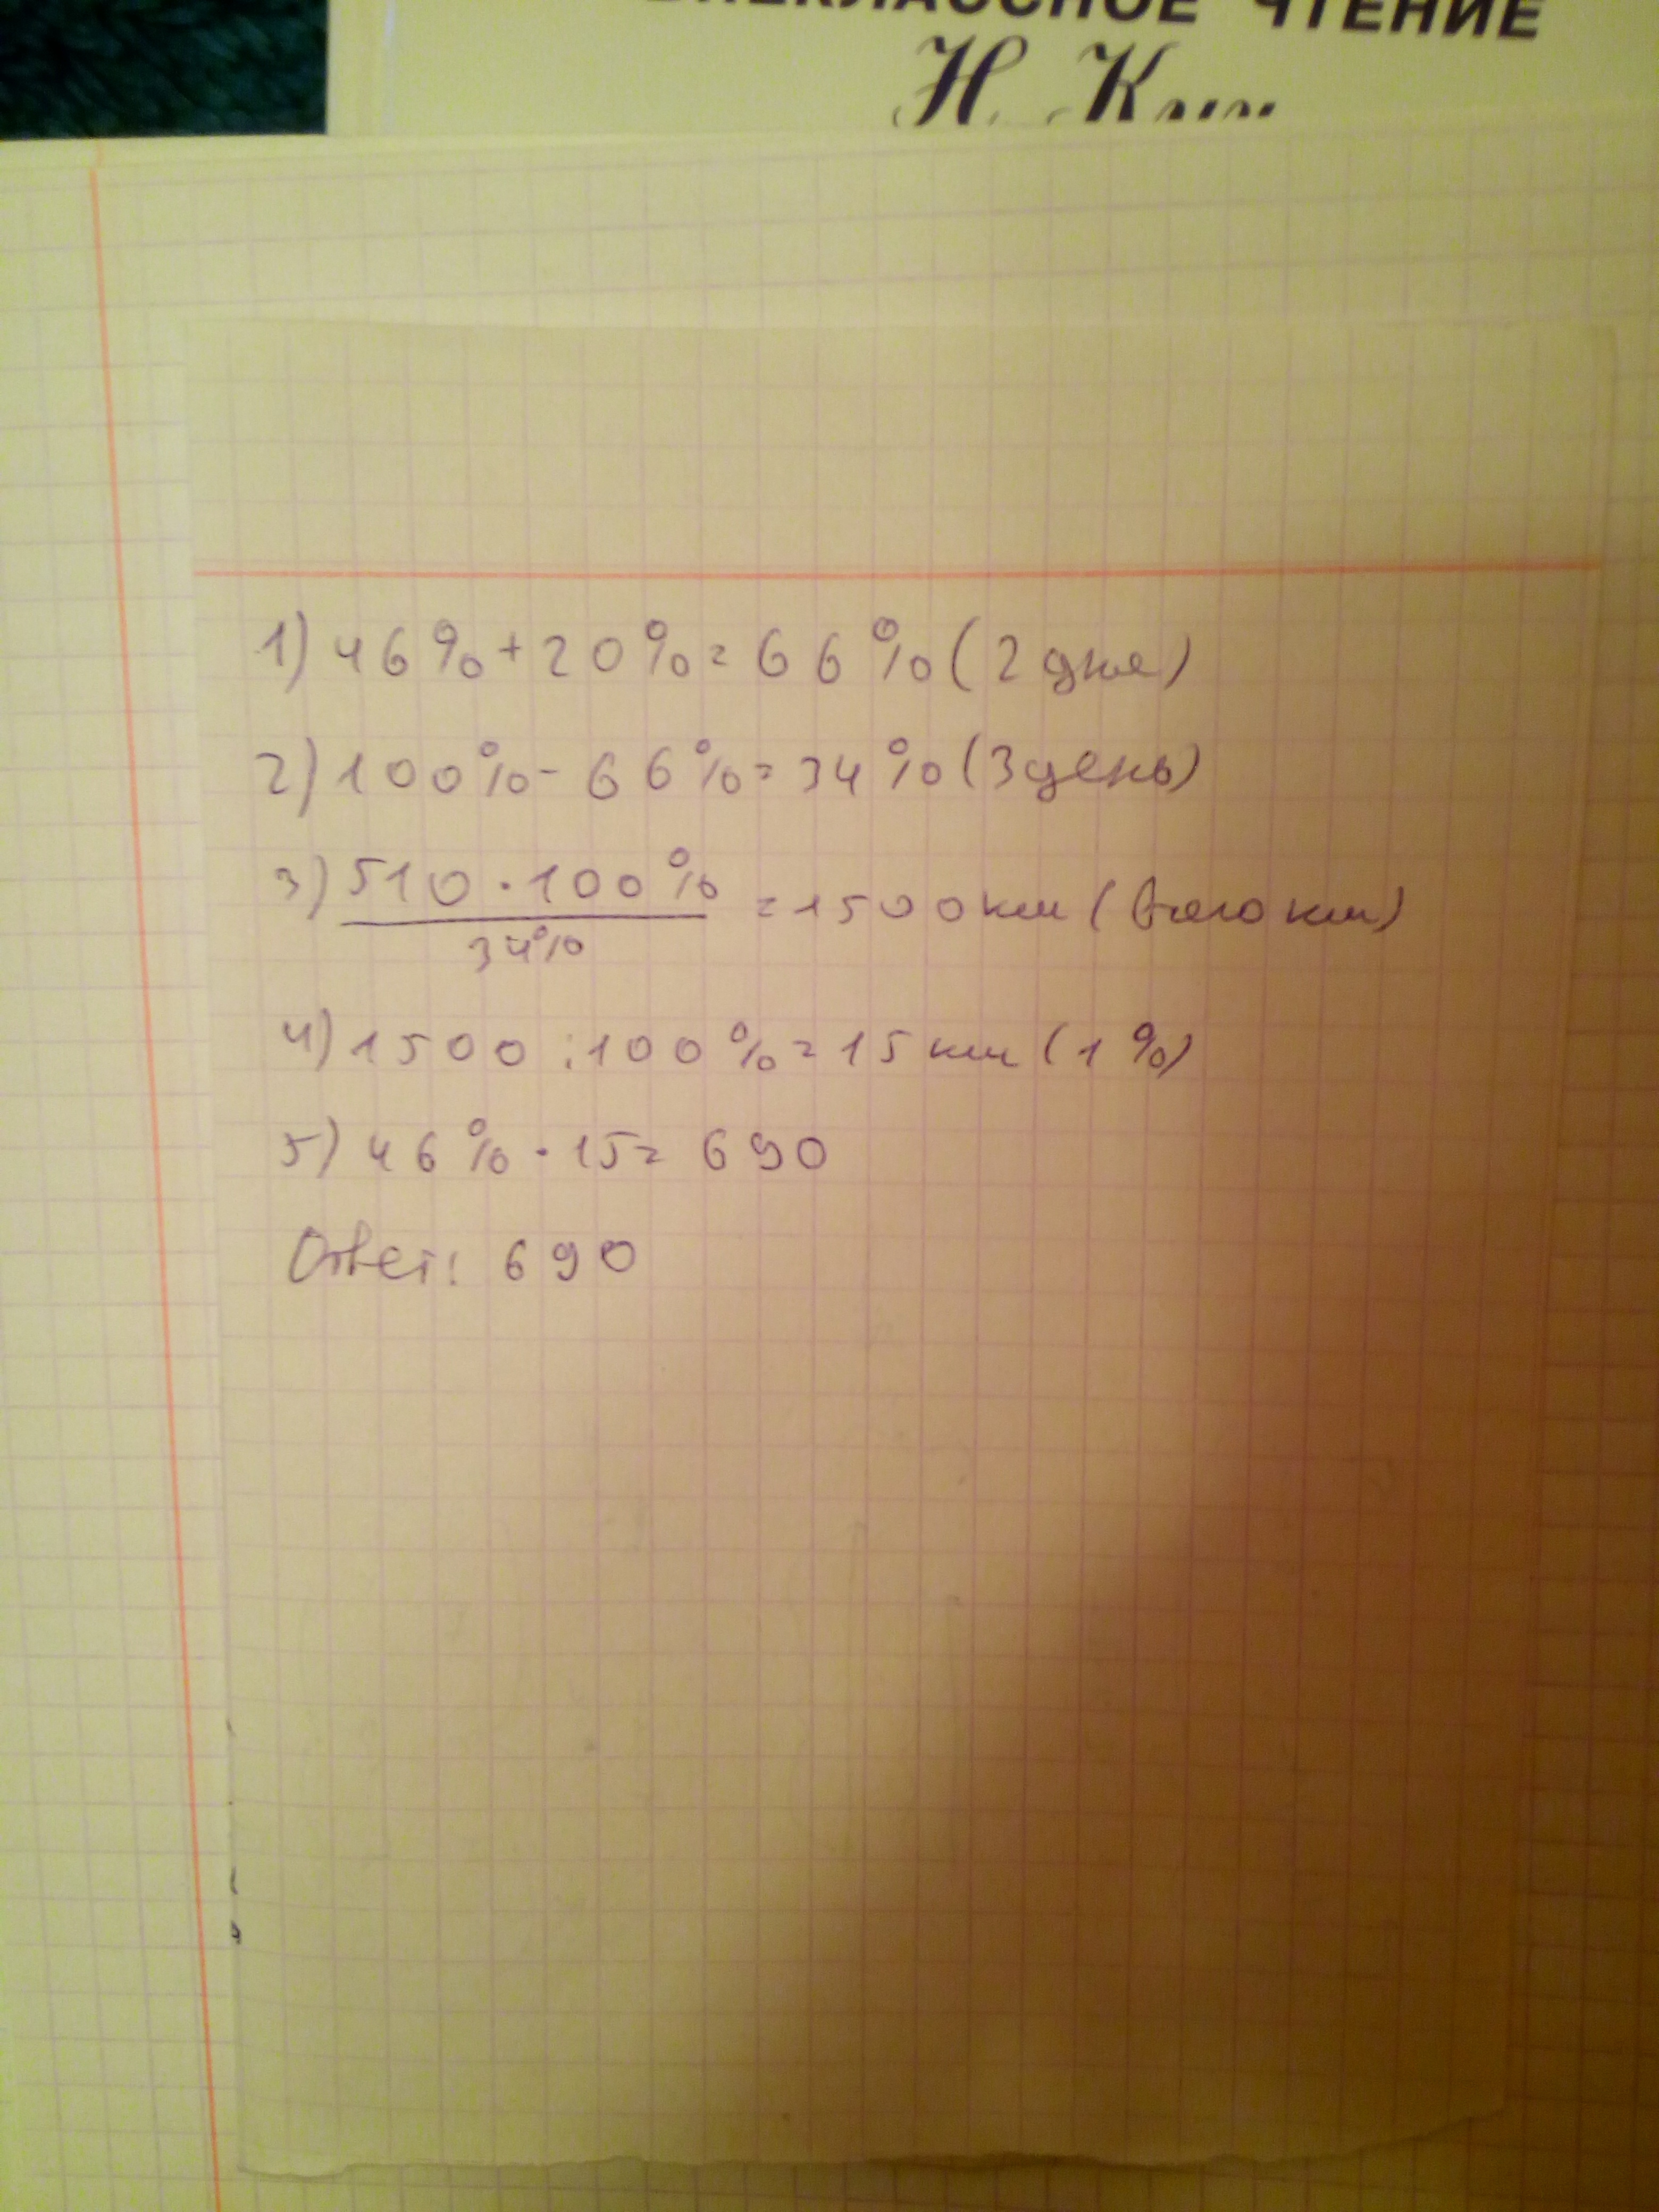 ВНЕКЛАССНОЕ ЧТЕНИЕ
Н.
1) 46% + 20% = 66% (2 дня)
2) 100% - 66% = 34% (3 день)
3) 510 · 100% / 34% = 1500 км (всего км)
4) 1500 : 100% = 15 км (1%)
5) 46% · 15 = 690
Ответ: 690